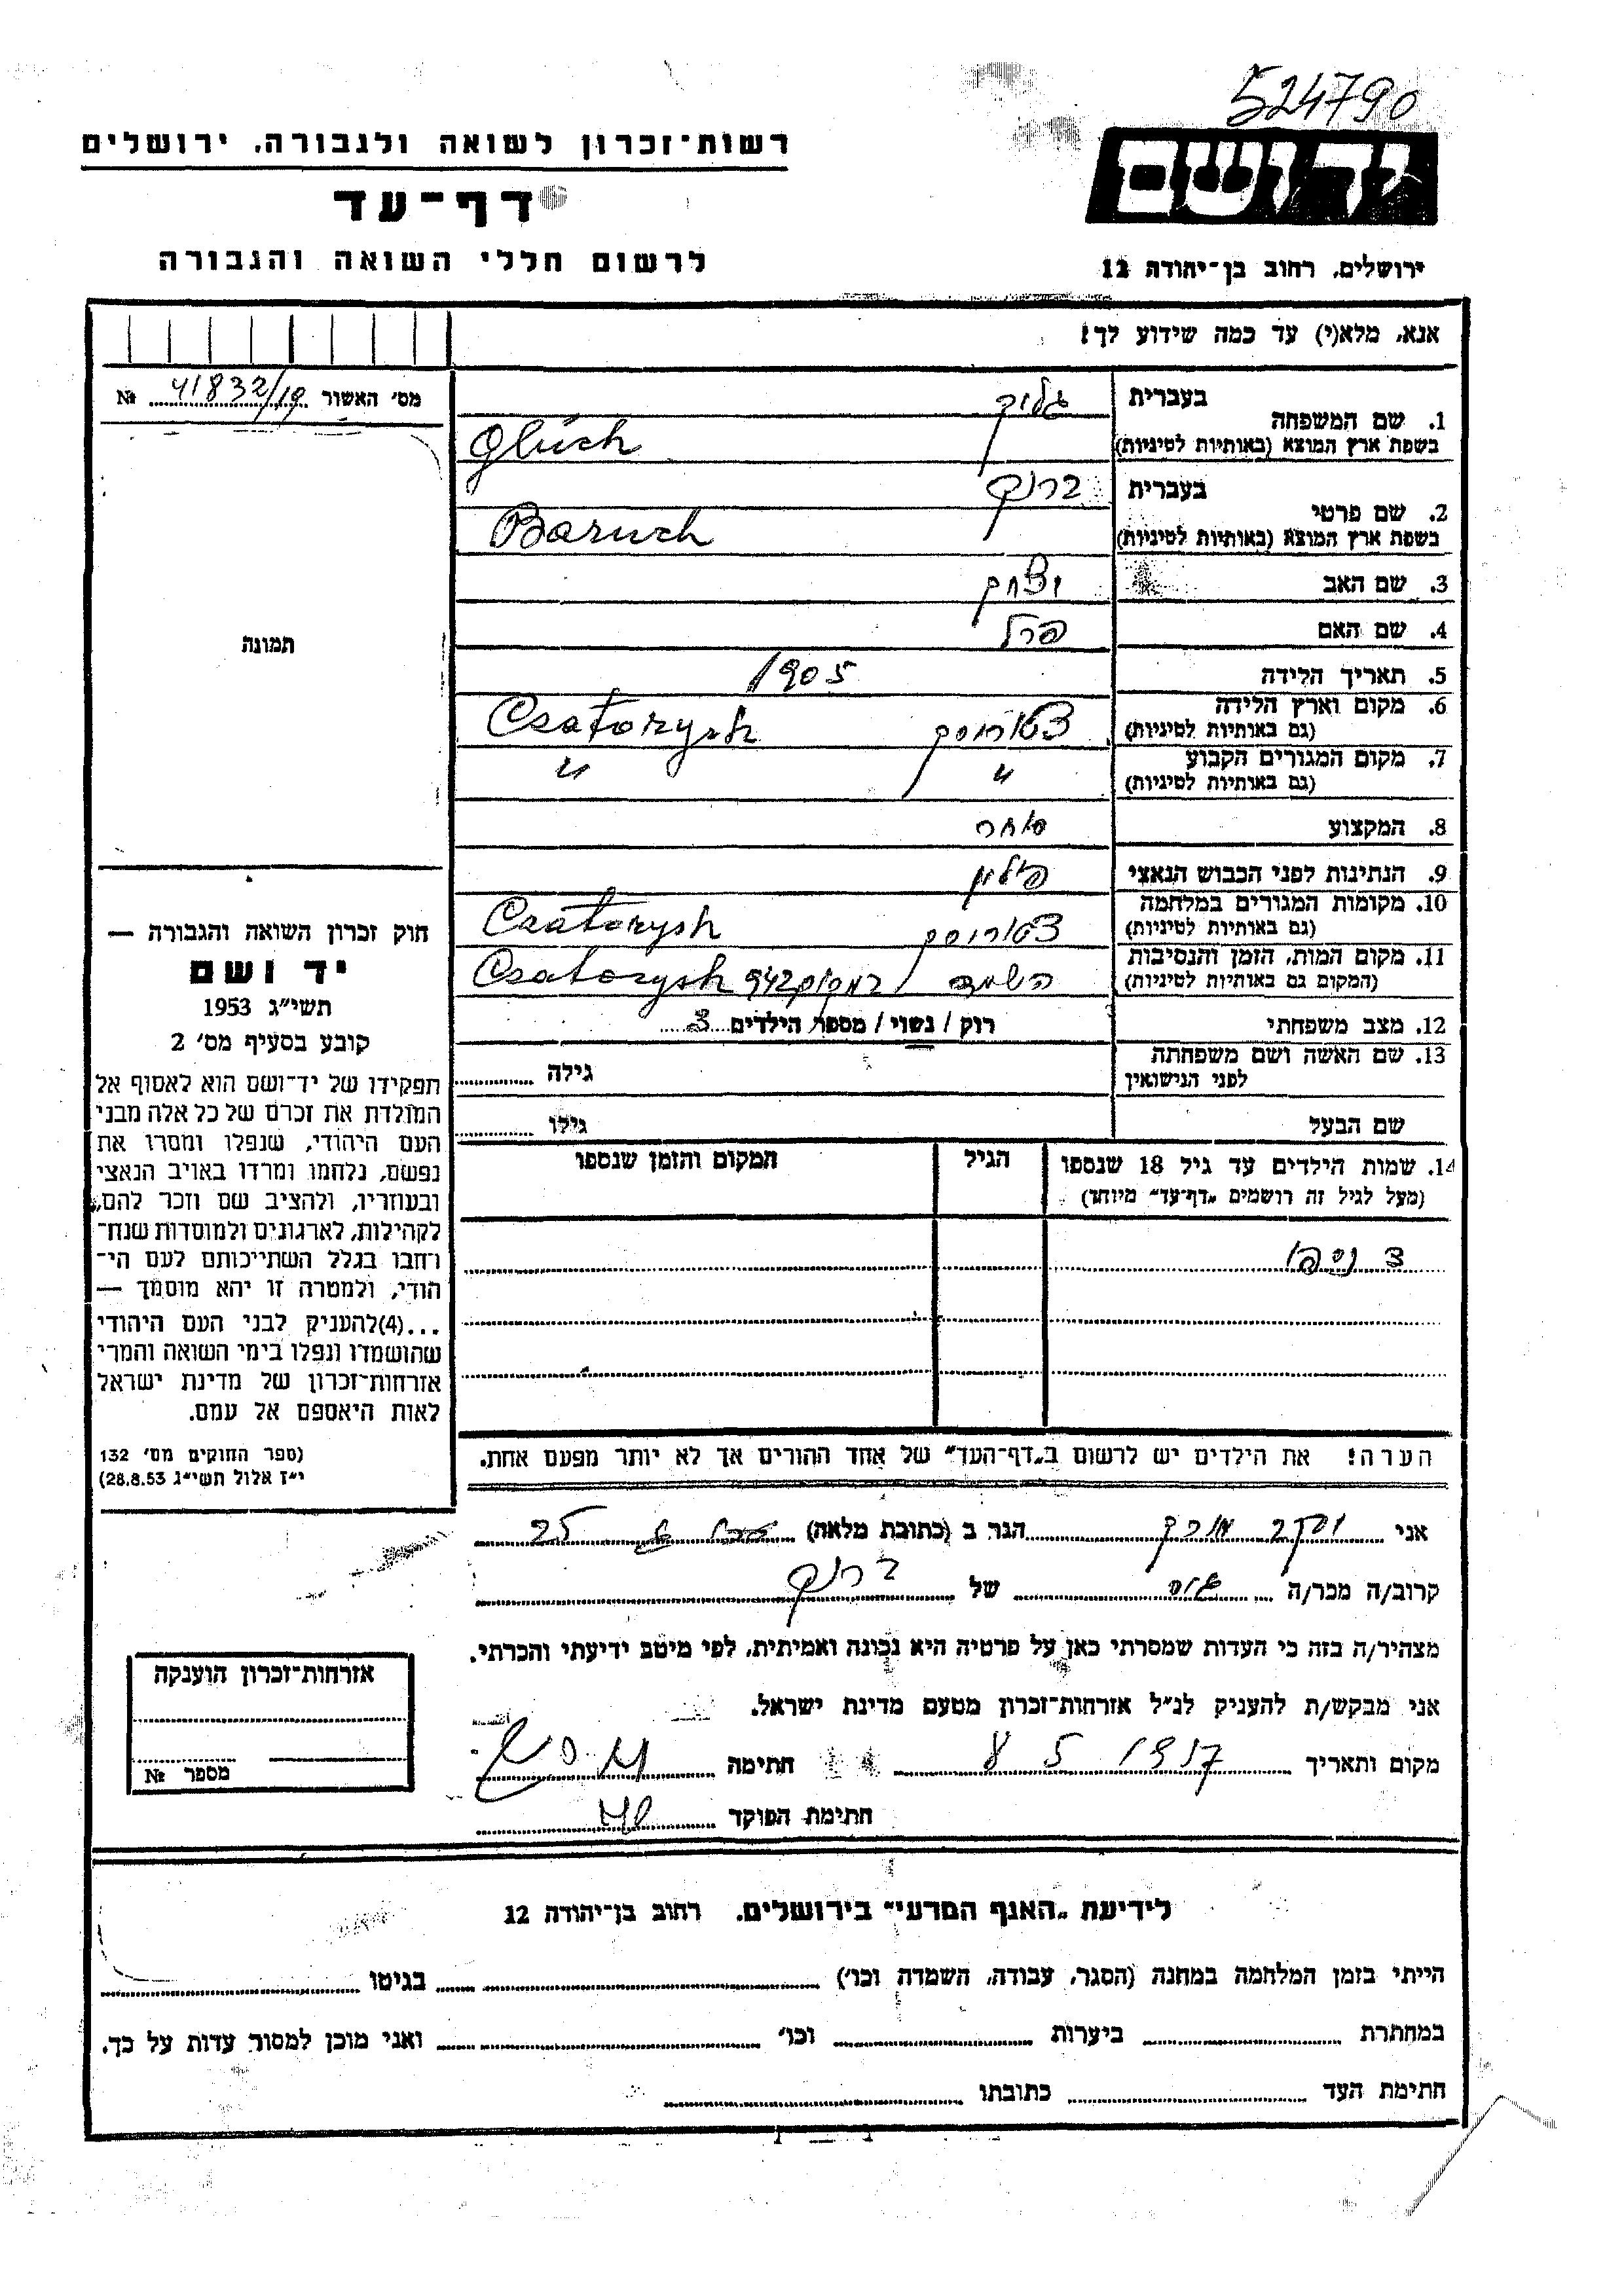 524790
רשות־זכרון לשואה ולגבורה. ירושלים
דף־עד
לרשום חללי השואה והגבורה
יד ושם
ירושלים, רחוב בן־יהודה 12
אנא, מלא(י) עד כמה שידוע לך!
מס׳ האשור 41832/19 №
תמונה
1. שם המשפחה
בעברית
גליק
בשפת ארץ המוצא (באותיות לטיניות)
Glück
2. שם פרטי
בעברית
ברוך
בשפת ארץ המוצא (באותיות לטיניות)
Baruch
3. שם האב
יצחק
4. שם האם
פרל
5. תאריך הלידה
1905
6. מקום וארץ הלידה
(גם באותיות לטיניות)
צטוריסק Csatorysk
7. מקום המגורים הקבוע
(גם באותיות לטיניות)
〃 〃
8. המקצוע
סוחר
9. הנתינות לפני הכבוש הנאצי
פולין
10. מקומות המגורים במלחמה
(גם באותיות לטיניות)
צטוריסק Csatorysk
11. מקום המות, הזמן והנסיבות
(המקום גם באותיות לטיניות)
השמד במקום 942 Csatorysk
12. מצב משפחתי
רוק / נשוי / מספר הילדים 3
13. שם האשה ושם משפחתה
לפני הנישואין
גילה
שם הבעל
גילו
14. שמות הילדים עד גיל 18 שנספו
(מעל לגיל זה רושמים „דף־עד״ מיוחד)
הגיל
המקום והזמן שנספו
3 נספו
הערה! את הילדים יש לרשום ב„דף־העד״ של אחד ההורים אך לא יותר מפעם אחת.
חוק זכרון השואה והגבורה —
יד ושם
תשי״ג 1953
קובע בסעיף מס׳ 2
תפקידו של יד־ושם הוא לאסוף אל
המולדת את זכרם של כל אלה מבני
העם היהודי, שנפלו ומסרו את
נפשם, נלחמו ומרדו באויב הנאצי
ובעוזריו, ולהציב שם וזכר להם,
לקהילות, לארגונים ולמוסדות שנח־
רחבו בגלל השתייכותם לעם הי־
הודי, ולמטרה זו יהא מוסמך —
...(4)להעניק לבני העם היהודי
שהושמדו ונפלו בימי השואה והמרי
אזרחות־זכרון של מדינת ישראל
לאות היאספם אל עמם.
(ספר החוקים מס׳ 132
י״ז אלול תשי״ג 28.8.53)
אני יעקב הגר ב (כתובת מלאה) 25
קרוב/ה מכר/ה גיס של ברוך
מצהיר/ה בזה כי העדות שמסרתי כאן על פרטיה היא נכונה ואמיתית, לפי מיטב ידיעתי והכרתי.
אני מבקש/ת להעניק לנ״ל אזרחות־זכרון מטעם מדינת ישראל.
מקום ותאריך 8 5 1957 חתימה
חתימת הפוקד
אזרחות־זכרון הוענקה
מספר №
לידיעת „האגף המדעי״ בירושלים. רחוב בן־יהודה 12
הייתי בזמן המלחמה במחנה (הסגר, עבודה, השמדה וכו׳) בגיטו
במחתרת ביערות וכו׳ ואני מוכן למסור עדות על כך.
חתימת העד כתובתו